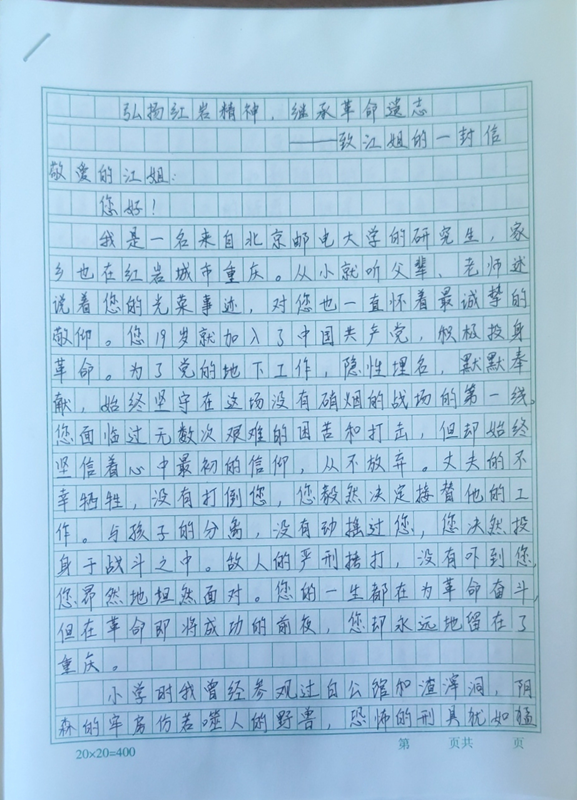 弘扬红岩精神，继承革命遗志
——致江姐的一封信
敬爱的江姐：
您好！
我是一名来自北京邮电大学的研究生，家
乡也在红岩城市重庆。从小就听父辈、老师述
说着您的光荣事迹，对您也一直怀着最诚挚的
敬仰。您19岁就加入了中国共产党，积极投身
革命。为了党的地下工作，隐性埋名，默默奉
献，始终坚守在这场没有硝烟的战场的第一线。
您面临过无数次艰难的困苦和打击，但却始终
坚信着心中最初的信仰，从不放弃。丈夫的不
幸牺牲，没有打倒您，您毅然决定接替他的工
作。与孩子的分离，没有动摇过您，您决然投
身于战斗之中。敌人的严刑拷打，没有吓到您，
您昂然地坦然面对。您的一生都在为革命奋斗，
但在革命即将成功的前夜，您却永远地留在了
重庆。
小学时我曾经参观过白公馆和渣滓洞，阴
森的牢房仿若噬人的野兽，恐怖的刑具犹如
20×20=400 第 页共 页